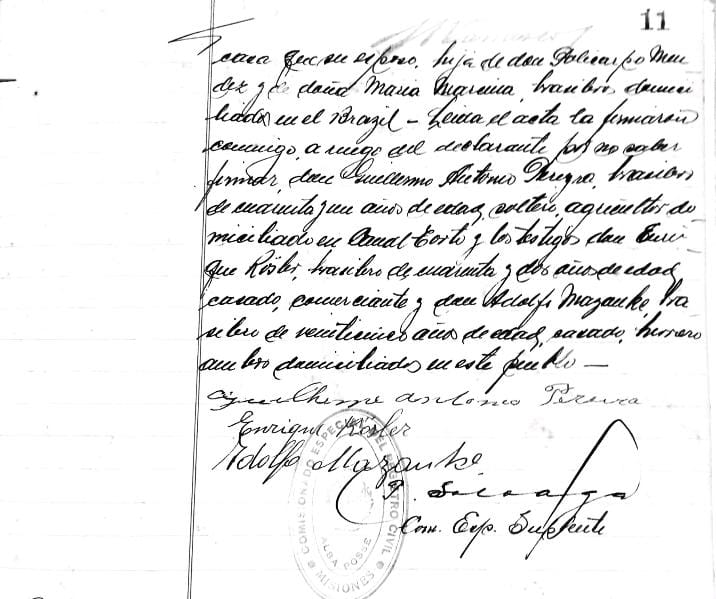 11
casa que su esposo, hija de don Policarpo Men
dez y de doña Maria Marcina, brasileros domici
liados en el Brazil – Leida el acta la firmaron
conmigo, a ruego del declarante por no saber
firmar, don Guillermo Antonio Pereyra, brasilero
de cuarenta y un años de edad, soltero, agricultor do
miciliado en Canal Torto y los testigos don Enri
que Rösler, brasilero de cuarenta y dos años de edad,
casado, comerciante y don Adolfo Mazanke bra
silero de veinticinco años de edad, casado, herrero
ambos domiciliados en este pueblo —
Guilherme Antonio Pereira
Enrique Rösler
Adolfo Mazanke
Com. Esp. Suplente
COMISIONADO ESPECIAL DEL REGISTRO CIVIL
ALBA POSSE
MISIONES